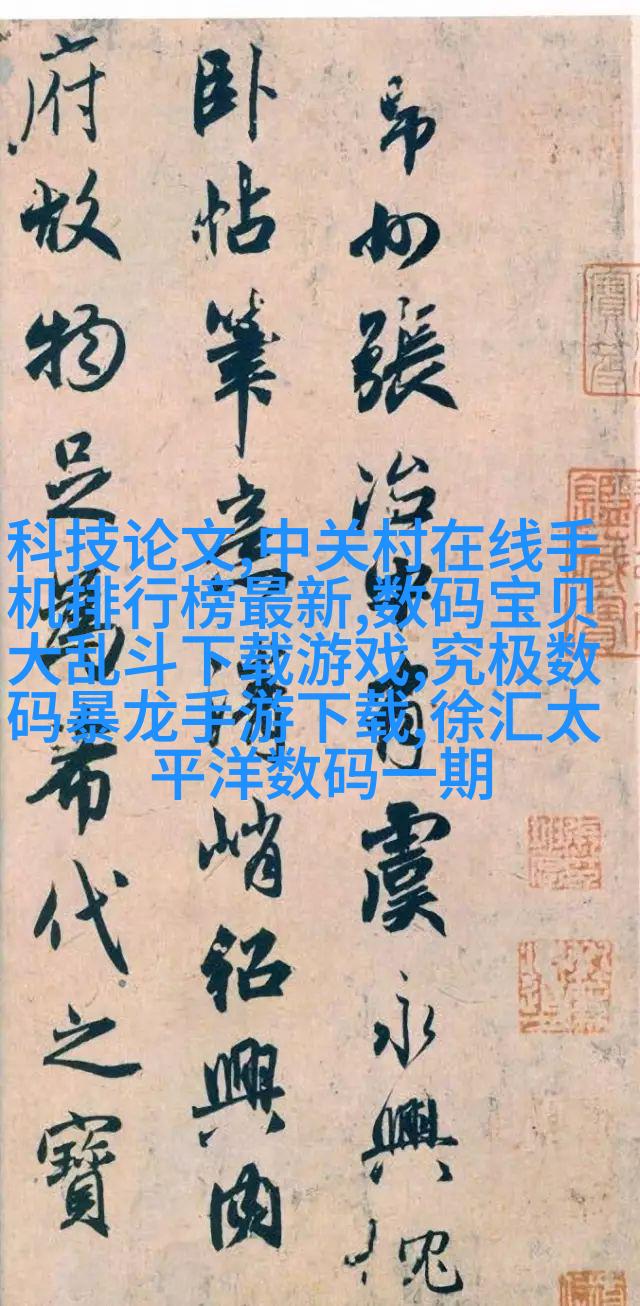 張治中有虞永興
卧帖筆意清峭紹興内
府故物足為希代之寶
科技论文,中关村在线手
机排行榜最新,数码宝贝
大乱斗下载游戏,究极数
码暴龙手游下载,徐汇太
平洋数码一期